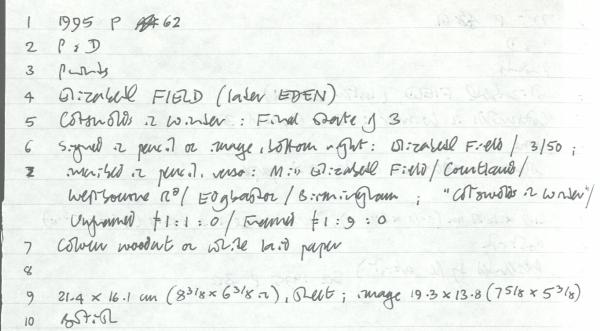 1 1995 P 62
2 P & D
3 Prints
4 Elizabeth FIELD (later EDEN)
5 Cotswolds in winter : Final state of 3
6 Signed in pencil on image, bottom right : Elizabeth Field / 3/50 ;
inscribed in pencil, verso : Miss Elizabeth Field / Courtlands /
Westbourne Rd / Edgbaston / Birmingham ; "Cotswolds in winter" /
Unframed £1 : 1 : 0 / Framed £1 : 9 : 0
7 Colour woodcut on white laid paper
8
9 21.4 x 16.1 cm (8 3/8 x 6 3/8 in), sheet ; image 19.3 x 13.8 (7 5/8 x 5 3/8)
10 British